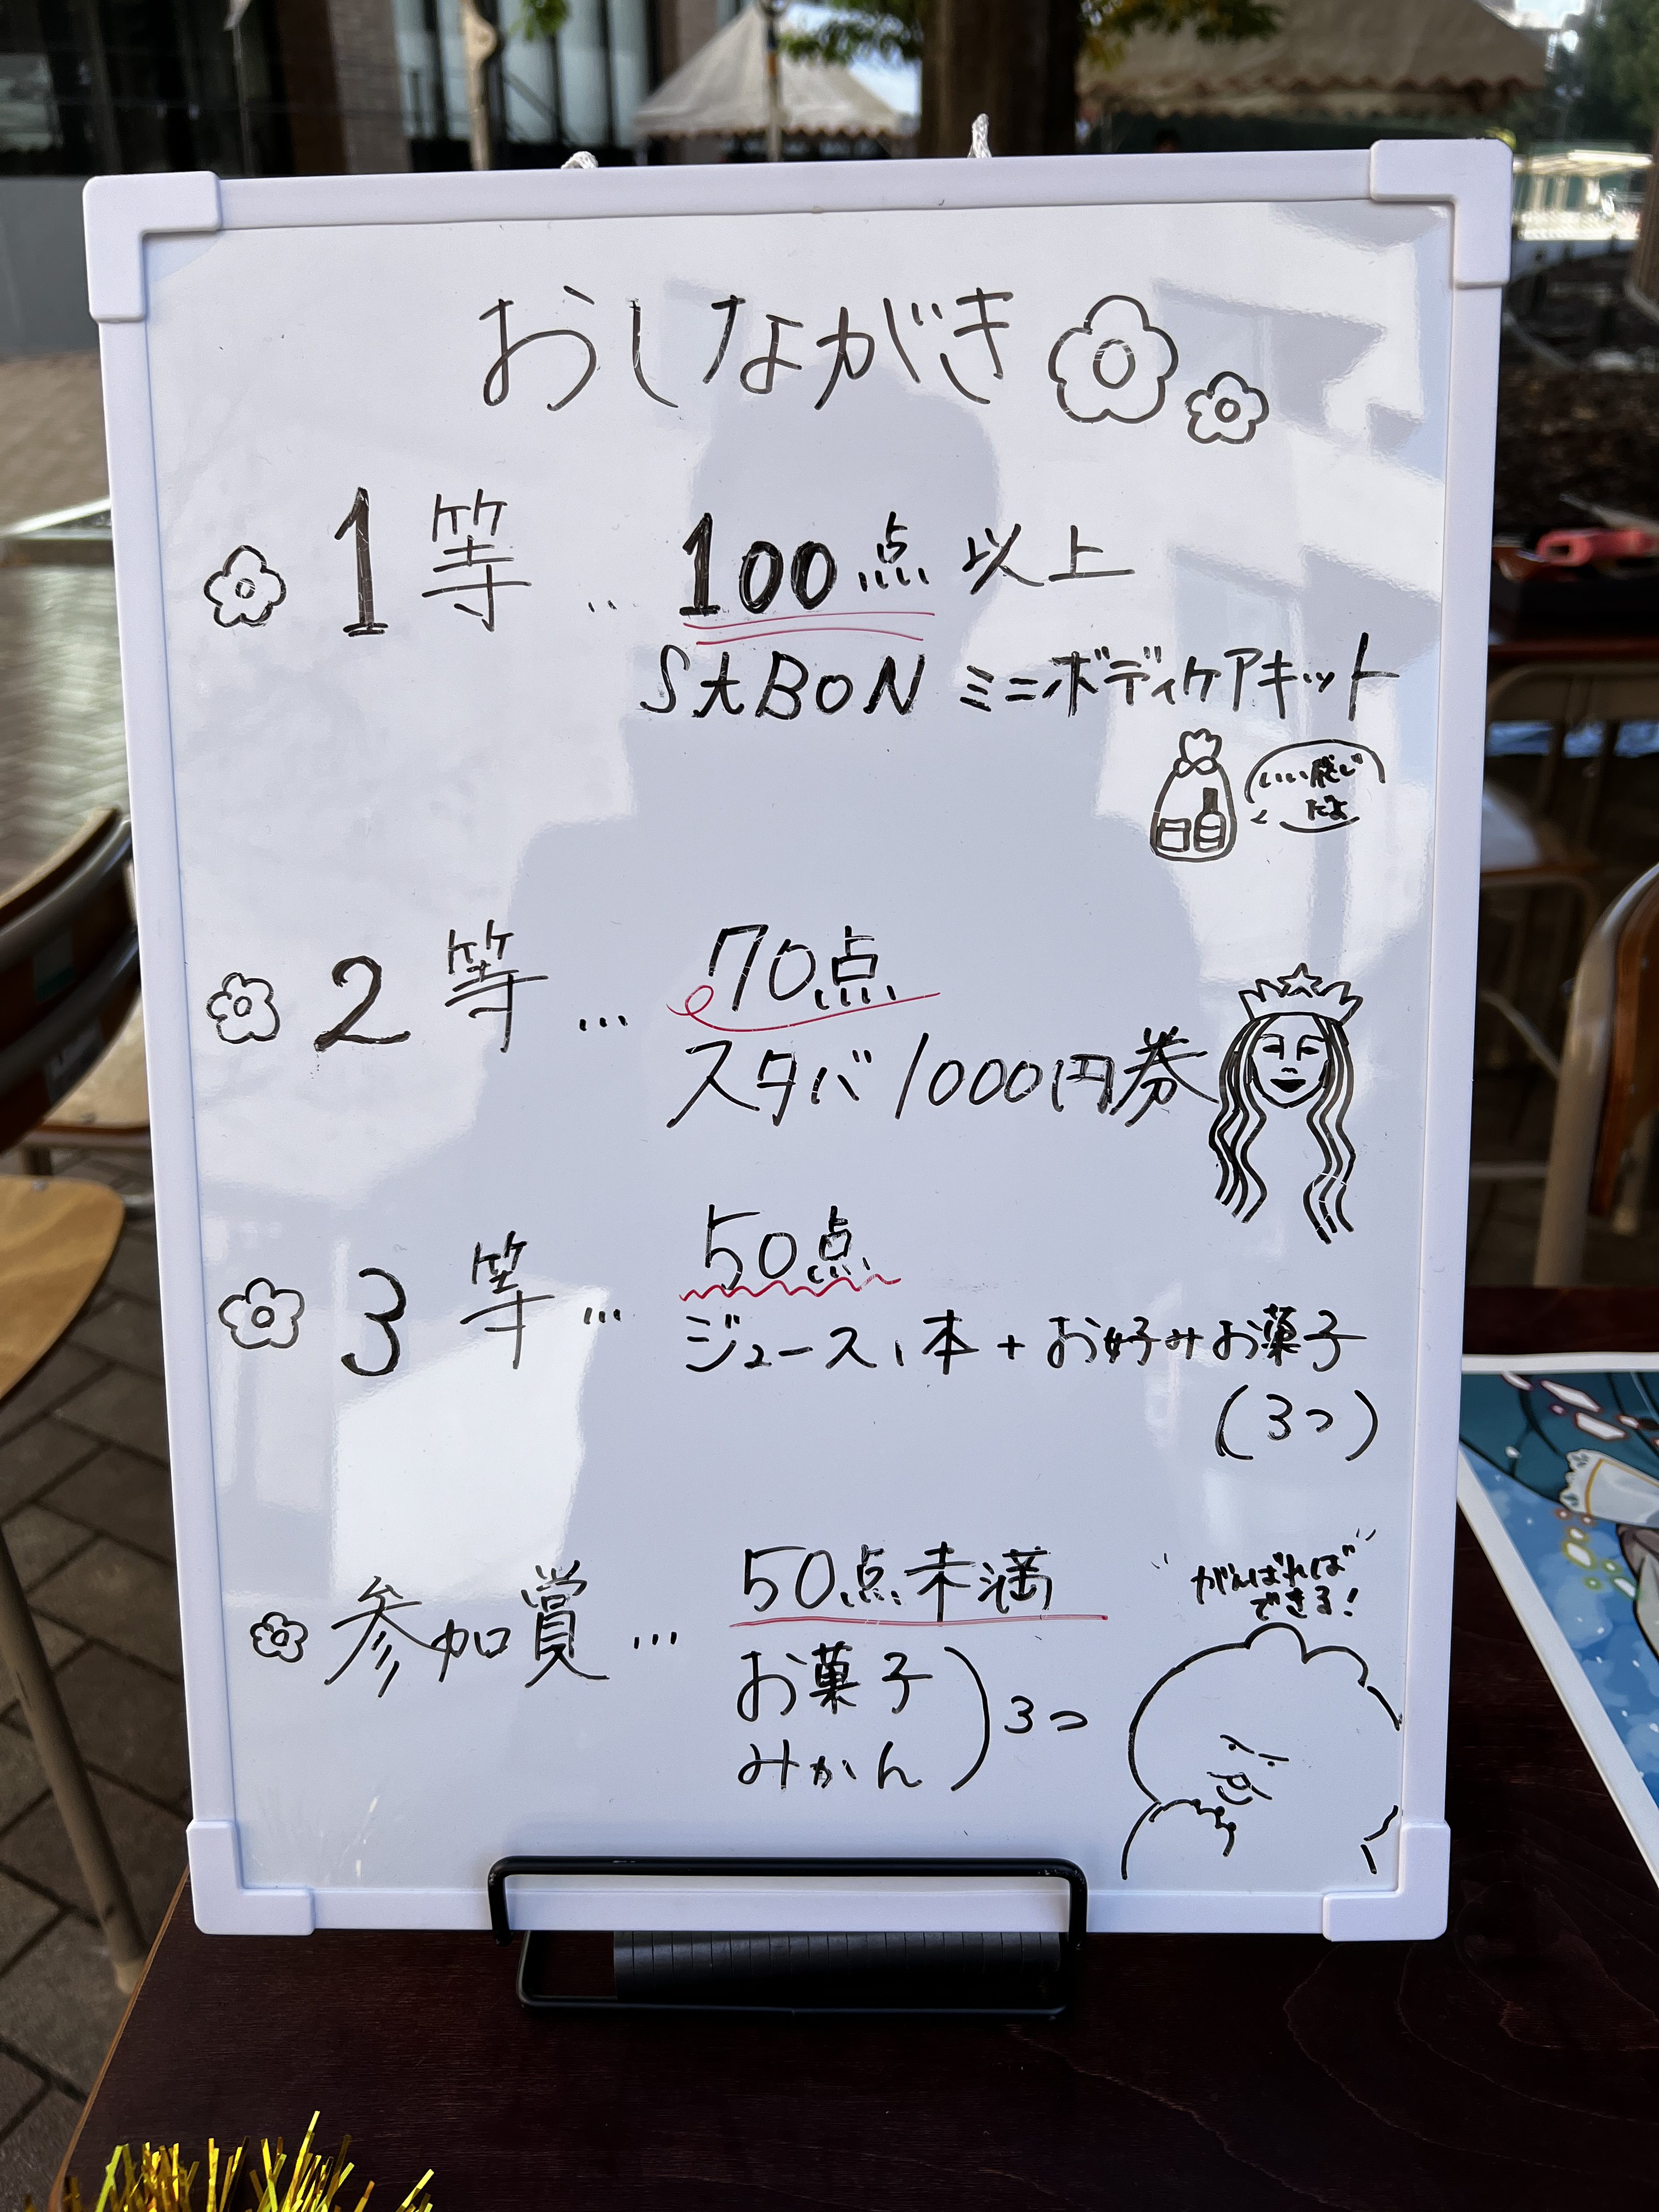 おしながき
1等… 100点以上
SABON ミニボディケアキット
いい感じ
だよ
2等… 70点
スタバ1000円券
3等… 50点
ジュース1本+お好みお菓子
(3つ)
参加賞… 50点未満
お菓子
みかん
3つ
"がんばれば"
できる!